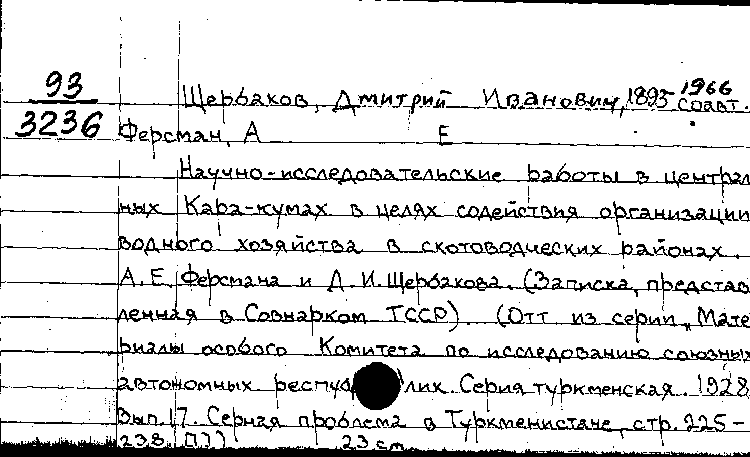 93
3236
Щербаков, Дмитрий Иванович, 1893-1966
соавт.
Ферсман, А Е
Научно-исследовательские работы в централ
ных Кара-кумах в целях содействия организации
водного хозяйства в скотоводческих районах.
А.Е. Ферсмана и Д.И. Щербакова. (Записка, представ
ленная в Совнарком ТССР). (Отт из серии „Мате
риалы особого Комитета по исследованию союзных
автономных республик. Серия туркменская. 1928
Вып. 17. Серная проблема в Туркменистане, стр. 225-
238 23 cm